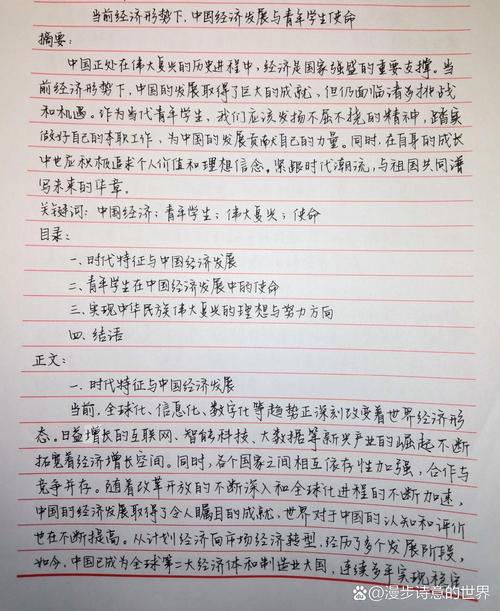 当前经济形势下,中国经济发展与青年学生使命
摘要:
中国正处在伟大复兴的历史进程中,经济是国家强盛的重要支撑。当
前经济形势下,中国的发展取得了巨大的成就,但仍面临诸多挑战
和机遇。作为当代青年学生,我们应该发扬不屈不挠的精神,踏实
做好自己的本职工作,为中国的发展贡献自己的力量。同时,在自身的成长
中也应积极追求个人价值和理想信念。紧跟时代潮流,与祖国共同谱
写未来的华章。
关键词:中国经济;青年学生;伟大复兴;使命
目录:
一.时代特征与中国经济发展
二.青年学生在中国经济发展中的使命
三.实现中华民族伟大复兴的理想与努力方向
四.结语
正文:
一.时代特征与中国经济发展
当前,全球化、信息化、数字化等趋势正深刻改变着世界经济形
态。日益增长的互联网、智能科技、大数据等新兴产业的崛起不断
拓宽着经济增长空间。同时,各个国家之间相互依存性加强,合作与
竞争并存。随着改革开放的不断深入和全球化进程的不断加速,
中国的经济发展取得了令人瞩目的成就,世界对于中国的认知和评价
也在不断提高。从计划经济向市场经济转型,经历了多个发展阶段。
如今,中国已成为全球第二大经济体和制造业大国,连续多年实现稳定
@漫步诗意的世界